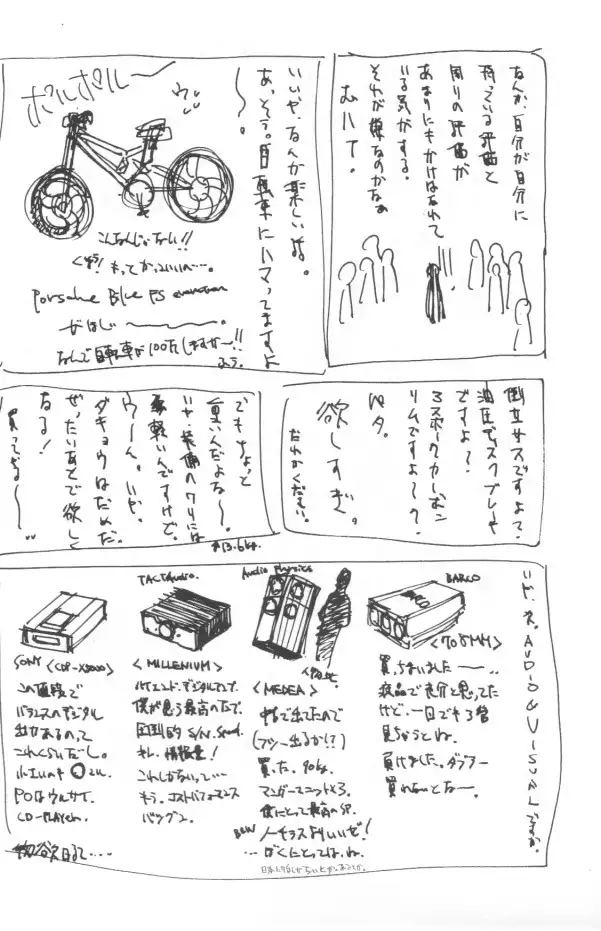 なんか、自分が自分に
持っている評価と
周りの評価が
あまりにもかけはなれて
いる気がする。
それが嫌なのかなぁ
むいて。
いいや、なんか楽しいよ。
あ、そう。自転車にハマってますよ
〜。
ポルポルー
こんなんじゃない!!
もっとかっこいい〜…。
Porsche Blue FS evolution
がほしい〜。
なんで自転車が100万しますか〜!!
倒立サスですよ?
油圧ディスクブレーキ
ですよ?
3スポークカーボン
リムですよ〜?
欲しすぎ。
だれかください。
でもちょっと
重いんだよな〜。
いや、装備のワリには
軽いんですけど。
ウーん。いや、
ダキョウはだめだ。
ぜったいあとで欲しく
なる!
買ってやる〜〜
13.6kg.
いや、ネ。AUDIO&VISUALですか。
SONY <CDP-X5000>
この値段で
バランスのデジタル
出力あるので
これくらいだし。
CD-PLAYER.
TACT Audio.
<MILLENIUM>
ハイエンド・デジタルアンプ。
僕が思う最高のアンプ。
圧倒的 S/N. Speed.
キレ. 情報量!
これしかないって…
もう、コストパフォーマンス
バツグン。
Audio Physics
<MEDEA>
中古で出てたので
(フツー出るか!?)
買った。90kg.
マンガーユニット×3.
僕にとって最高のSP.
B&W ノーチラスよりいいぜ!
…ぼくにとってはね。
BARCO
<708MM>
買っちまいました〜〜
液晶で充分と思ってた
けど、一回でも3管
見ちゃうとね。
負けました。ダブラー
買わないとなー。